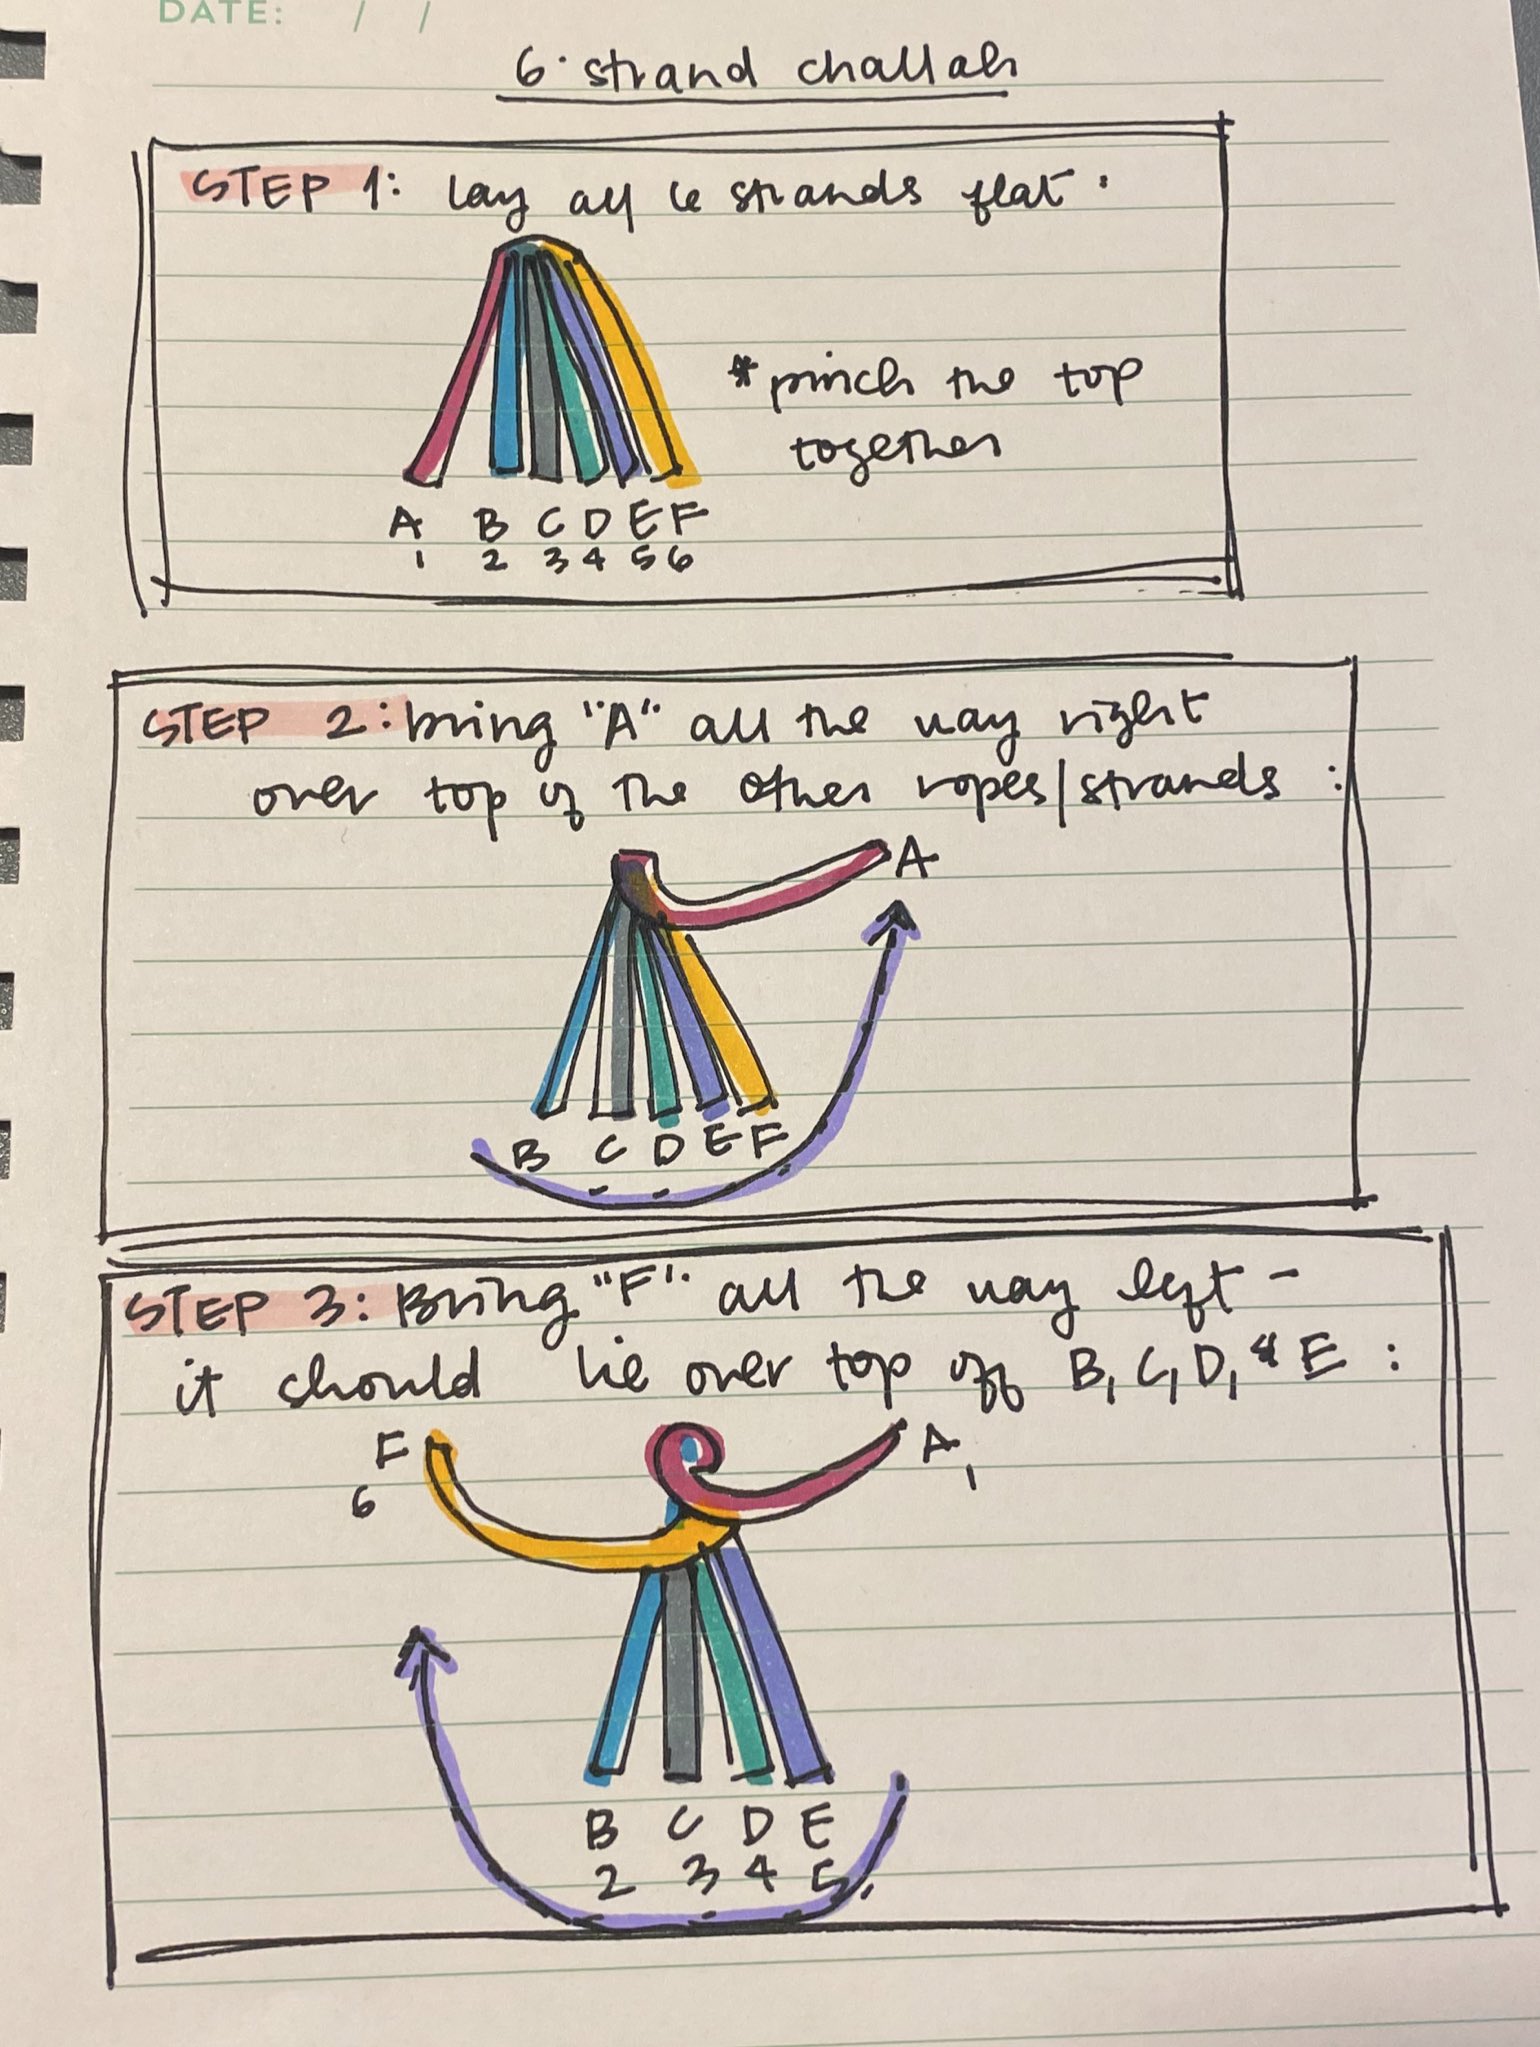 DATE: / /
6·strand challah
STEP 1: lay all 6 strands flat.
*pinch the top
together
A B C D E F
1 2 3 4 5 6
STEP 2: bring "A" all the way right
over top of the other ropes/strands:
A
B C D E F
STEP 3: Bring "F" all the way left -
it should lie over top off B, C, D, & E:
F A
6 1
B C D E
2 3 4 5